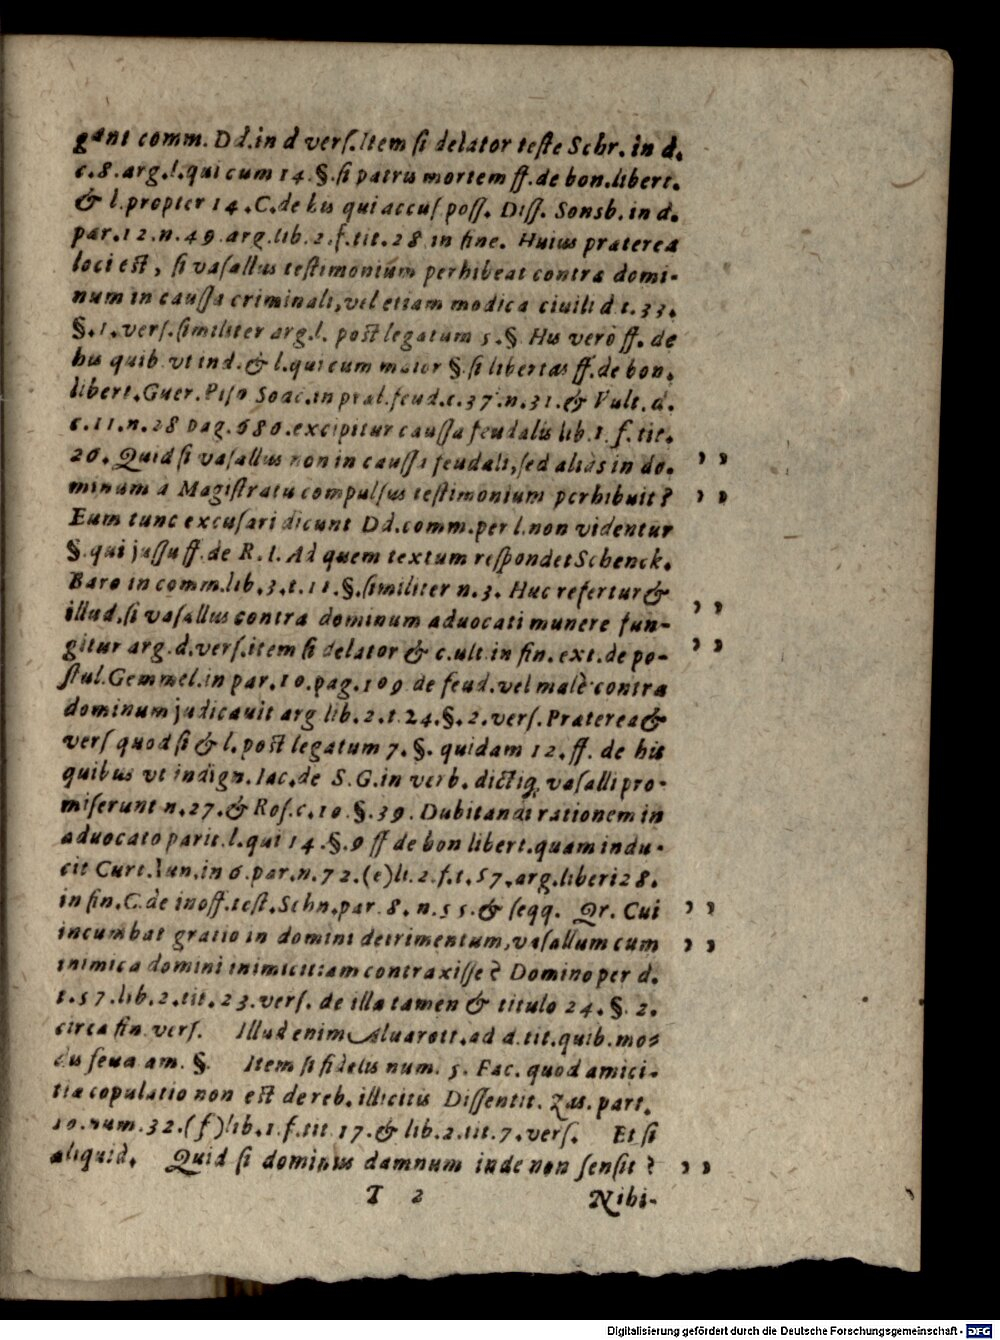 gant comm. Dd.in d verſ.Item ſi delator teſte Schr. in d.
c.8.arg.l.qui cum 14.§.ſi patris mortem ff.de bon.libert.
& l.propter 14.C.de his qui accuſ poſſ. Diſſ. Sonsb. in d.
par.12.n.49.arg.lib.2.f.tit.28 in fine. Huius praterea
loci est, ſi vaſallus teſtimonium perhibeat contra domi-
num in cauſſa criminali, vel etiam modica ciuili d.t.33.
§.1.verſ.ſimiliter arg.l. post legatum 5.§ His verò ff. de
his quib vt ind.& l.qui cum maior §.ſi libertas ff.de bon.
libert.Guer.Piſo Soac.in præl.feud.c.37.n.31.& Vult.d.
c.11.n.28 pag.680.excipitur cauſſa feudalis lib.1.f.tit.
20. Quid ſi vaſallus non in cauſſa feudali, ſed aliàs in do- , ,
minum a Magiſtratu compulſus teſtimonium perhibuit? , ,
Eum tunc excuſari dicunt Dd.comm.per l.non videntur
§.qui juſſu ff.de R.I. Ad quem textum reſpondet Schenck.
Baro in comm.lib.3.t.11.§.ſimiliter n.3. Huc refertur &
illud, ſi vaſallus contra dominum aduocati munere fun- , ,
gitur arg.d.verſ.item ſi delator & c.ult.in fin.ext.de po- , ,
ſtul.Gemmel.in par.10.pag.109 de feud.vel malè contra
dominum judicauit arg lib.2.t.24.§.2.verſ.Praterea &
verſ quod ſi & l.post legatum 7.§. quidam 12.ff. de his
quibus vt indign.Iac.de S.G.in verb. dictiq; vaſalli pro-
miſerunt n.27.& Roſ.c.10.§.39. Dubitandi rationem in
aduocato parit.l.qui 14.§.9 ff de bon libert.quam indu-
cit Curt.Iun.in 6.par.n.72.(e)li.2.f.t.57.arg.liberi 28.
in fin.C.de inoff.teſt.Schn.par.8.n.55.& ſeqq. Qr. Cui , ,
incumbat gratio in domini detrimentum, vaſallum cum , ,
inimica domini inimicitiam contraxiſſe? Domino per d.
t.57.lib.2.tit.23.verſ. de illa tamen & titulo 24.§.2.
circa fin verſ. Illud enim Aluarott.ad d.tit.quib.mo-
dis feud am. §. Item ſi fidelis num. 5. Fac. quod amici-
tiæ copulatio non est de reb. illicitis Diſſentit. Zas. part.
10.num.32.(f)lib.1.f.tit 17.& lib.2.tit.7.verſ. Et ſi
aliquid. Quid ſi dominus damnum inde non ſenſit? , ,
T 2 Nihi-
Digitalisierung gefördert durch die Deutsche Forschungsgemeinschaft - DFG